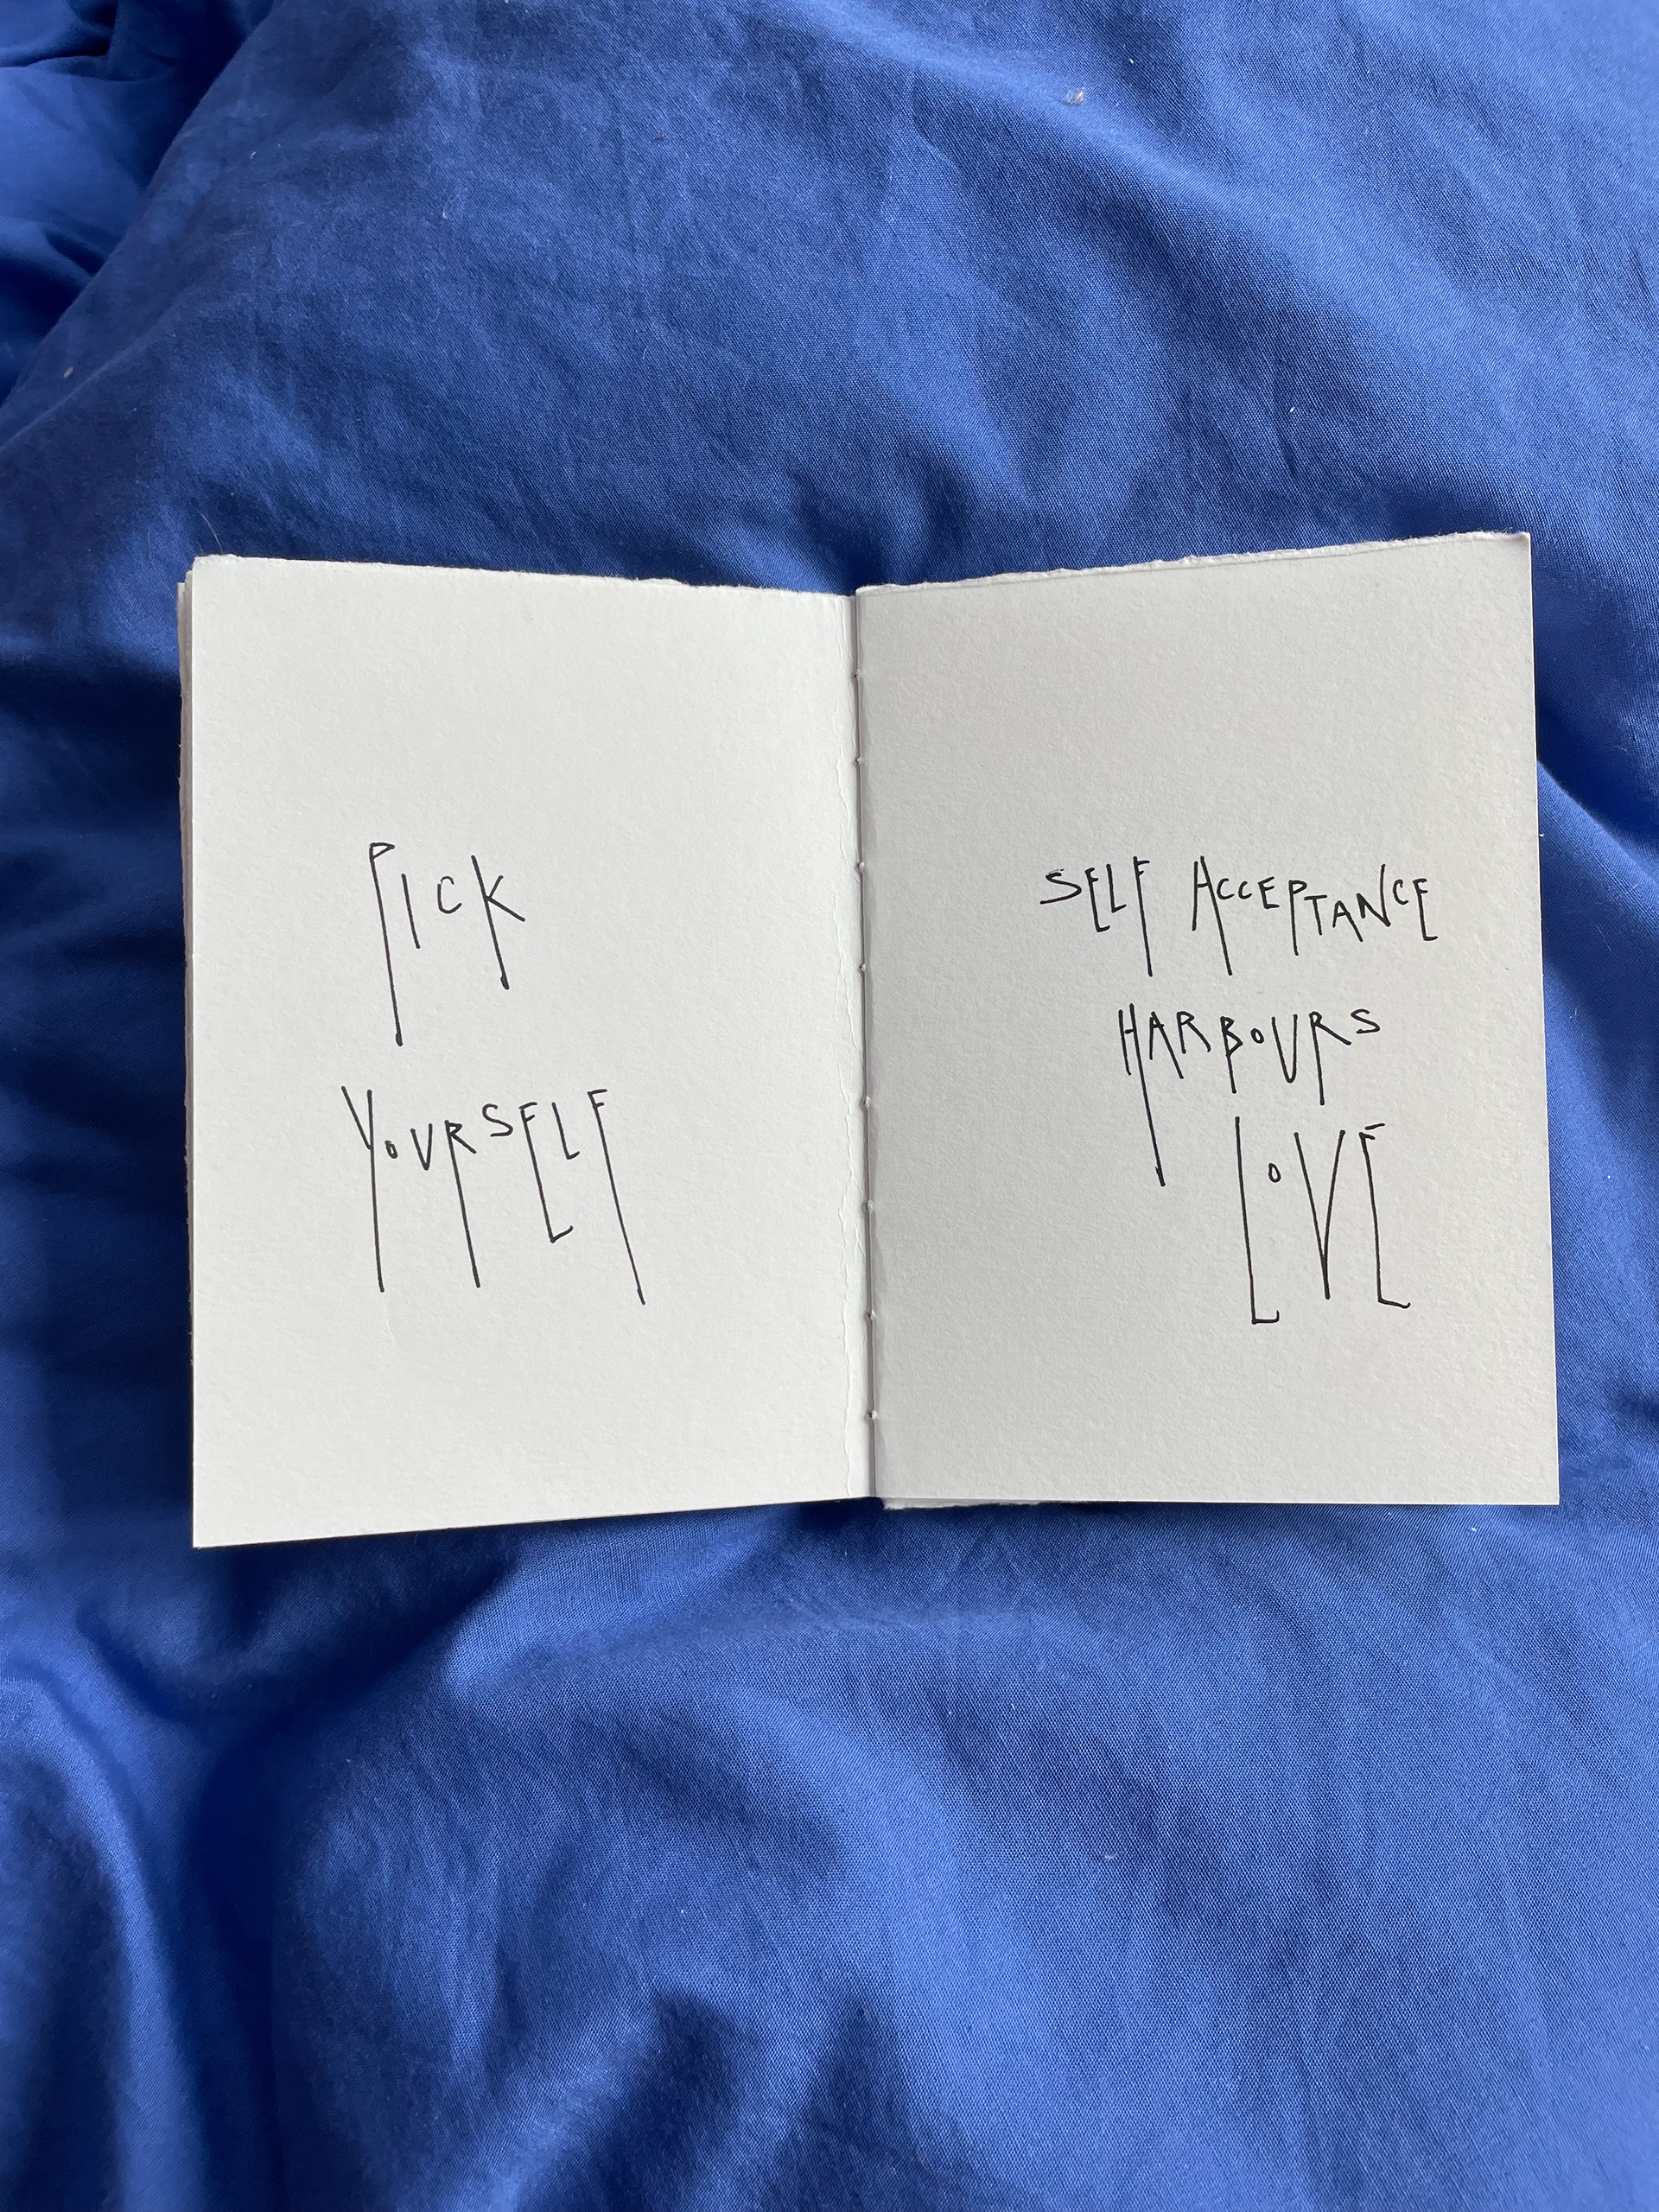 PICK
YOURSELF
SELF ACCEPTANCE
HARBOURS
LOVE